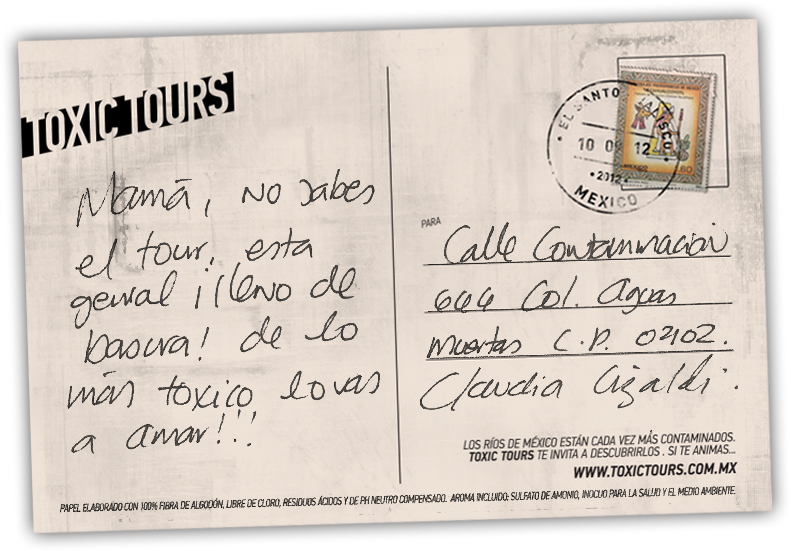 TOXIC TOURS
Mamá, no sabes
el tour, esta
genial ¡lleno de
basura! de lo
más toxico lo vas
a amar!!!
EL SANTO JALISCO
10 09 12
• 2012 •
MEXICO
MEXICO
60
PARA
Calle Contaminación
666 Col. Aguas
Muertas C.P. 02102.
Claudia
LOS RÍOS DE MÉXICO ESTÁN CADA VEZ MÁS CONTAMINADOS.
TOXIC TOURS TE INVITA A DESCUBRIRLOS . SI TE ANIMAS...
WWW.TOXICTOURS.COM.MX
PAPEL ELABORADO CON 100% FIBRA DE ALGODÓN, LIBRE DE CLORO, RESIDUOS ÁCIDOS Y DE PH NEUTRO COMPENSADO. AROMA INCLUIDO: SULFATO DE AMONIO, INOCUO PARA LA SALUD Y EL MEDIO AMBIENTE.